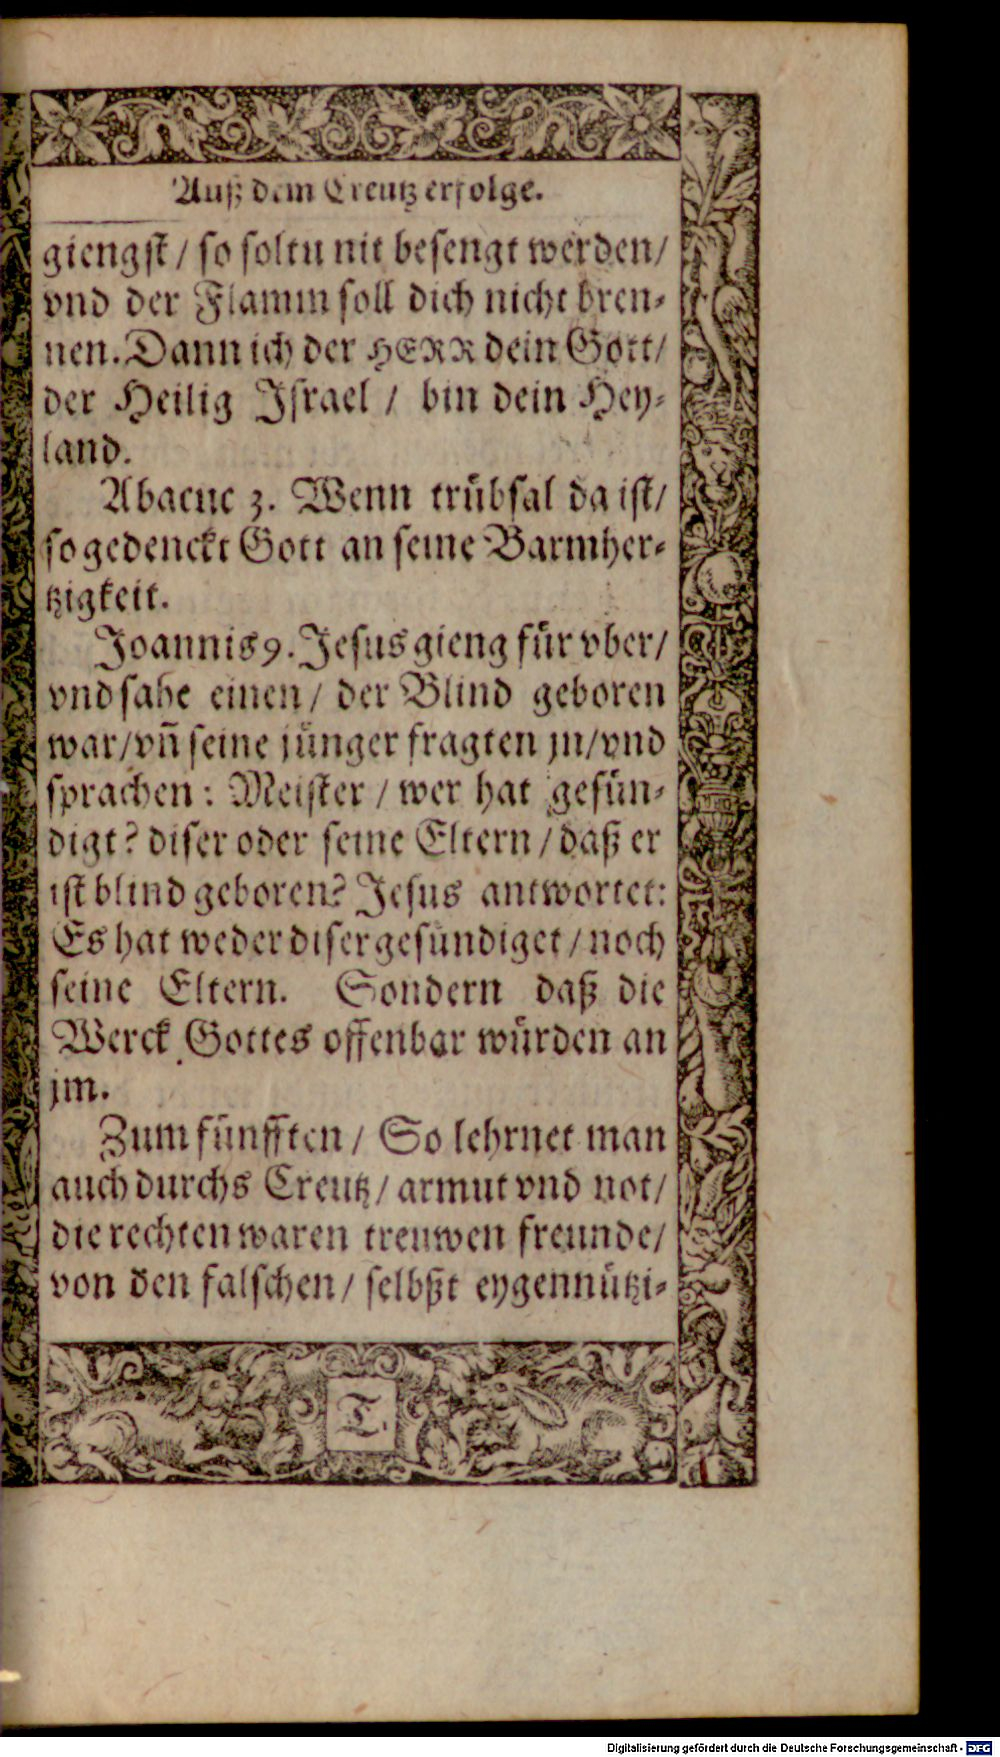 Auß dem Creutz erfolge.
giengst / so soltu nit besengt werden/
vnd der Flamm soll dich nicht bren-
nen. Dann ich der HERR dein Gott/
der Heilig Israel / bin dein Hey-
land.
Abacuc 3. Wenn trübsal da ist/
so gedenckt Gott an seine Barmher-
tzigkeit.
Joannis 9. Jesus gieng für vber/
vnd sahe einen / der Blind geboren
war/vñ seine jünger fragten jn/vnd
sprachen : Meister / wer hat gesün-
digt? diser oder seine Eltern / daß er
ist blind geboren? Jesus antwortet:
Es hat weder diser gesündiget / noch
seine Eltern. Sondern daß die
Werck Gottes offenbar würden an
jm.
Zum fünfften / So lehrnet man
auch durchs Creutz / armut vnd not/
die rechten waren treuwen freunde/
von den falschen / selbßt eygennützi-
T
Digitalisierung gefördert durch die Deutsche Forschungsgemeinschaft - DFG